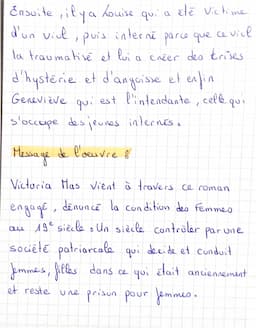 Ensuite, il y a Louise qui a été victime
d'un viol, puis interné parce que ce viol
la traumatisé et lui a créer des crises
d'hystérie et d'angoisse et enfin
Geneviève qui est l'intendante, celle qui
s'occupe des jeunes internés.
Message de l'œuvre :
Victoria Mas vient à travers ce roman
engagé, dénoncé la condition des Femmes
au 19e siècle : Un siècle contrôler par une
société patriarcale qui decide et conduit
femmes, filles dans ce qui était anciennement
et reste une prison pour femmes.